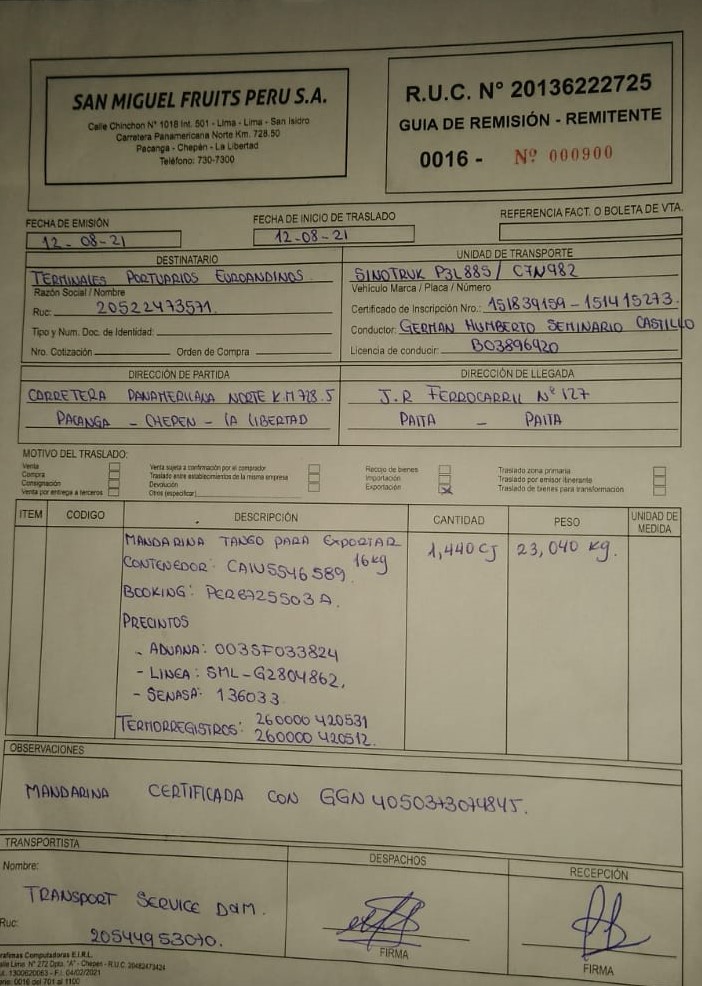 SAN MIGUEL FRUITS PERU S.A.
Calle Chinchon N° 1018 Int. 501 - Lima - Lima - San Isidro
Carretera Panamericana Norte Km. 728.50
Pacanga - Chepén - La Libertad
Teléfono: 730-7300
R.U.C. N° 20136222725
GUIA DE REMISIÓN - REMITENTE
0016 - Nº 000900
FECHA DE EMISIÓN
12-08-21
FECHA DE INICIO DE TRASLADO
12-08-21
REFERENCIA FACT. O BOLETA DE VTA.
DESTINATARIO
TERMINALES PORTUARIOS EUROANDINOS
Razón Social / Nombre
Ruc: 20522473571
Tipo y Num. Doc. de Identidad:
Nro. Cotización Orden de Compra
UNIDAD DE TRANSPORTE
SINOTRUK P3L885 / C7N982
Vehículo Marca / Placa / Número
Certificado de Inscripción Nro.: 151839159 - 151415273.
Conductor: GERMAN HUMBERTO SEMINARIO CASTILLO
Licencia de conducir: B03896920
DIRECCIÓN DE PARTIDA
CARRETERA PANAMERICANA NORTE K.M 728.5
PACANGA - CHEPEN - LA LIBERTAD
DIRECCIÓN DE LLEGADA
J.R FERROCARRIL N° 127
PAITA - PAITA
MOTIVO DEL TRASLADO:
Venta
Compra
Consignación
Venta por entrega a terceros
Venta sujeta a confirmación por el comprador
Traslado entre establecimientos de la misma empresa
Devolución
Otros (especificar)
Recojo de bienes
Importación
Exportación X
Traslado zona primaria
Traslado por emisor itinerante
Traslado de bienes para transformación
ITEM CODIGO DESCRIPCIÓN CANTIDAD PESO UNIDAD DE MEDIDA
MANDARINA TANGO PARA EXPORTAR 1,440 CJ 23,040 kg.
16kg
CONTENEDOR: CAIU5546589
BOOKING: PER8725503A.
PRECINTOS
- ADUANA: 003SF033824
- LINEA: SML-G2804862,
- SENASA: 136033
TERMORREGISTROS: 260000 420531
260000 420512.
OBSERVACIONES
MANDARINA CERTIFICADA CON GGN 4050373074845.
TRANSPORTISTA
Nombre:
TRANSPORT SERVICE D&M.
Ruc:
20544953070.
DESPACHOS
FIRMA
RECEPCIÓN
FIRMA
rafimas Computadoras E.I.R.L.
alle Lima N° 272 Dpto. "A" - Chepen - R.U.C. 20482473424
ut. 1300620063 - F.I. 04/02/2021
erie: 0016 del 701 al 1100